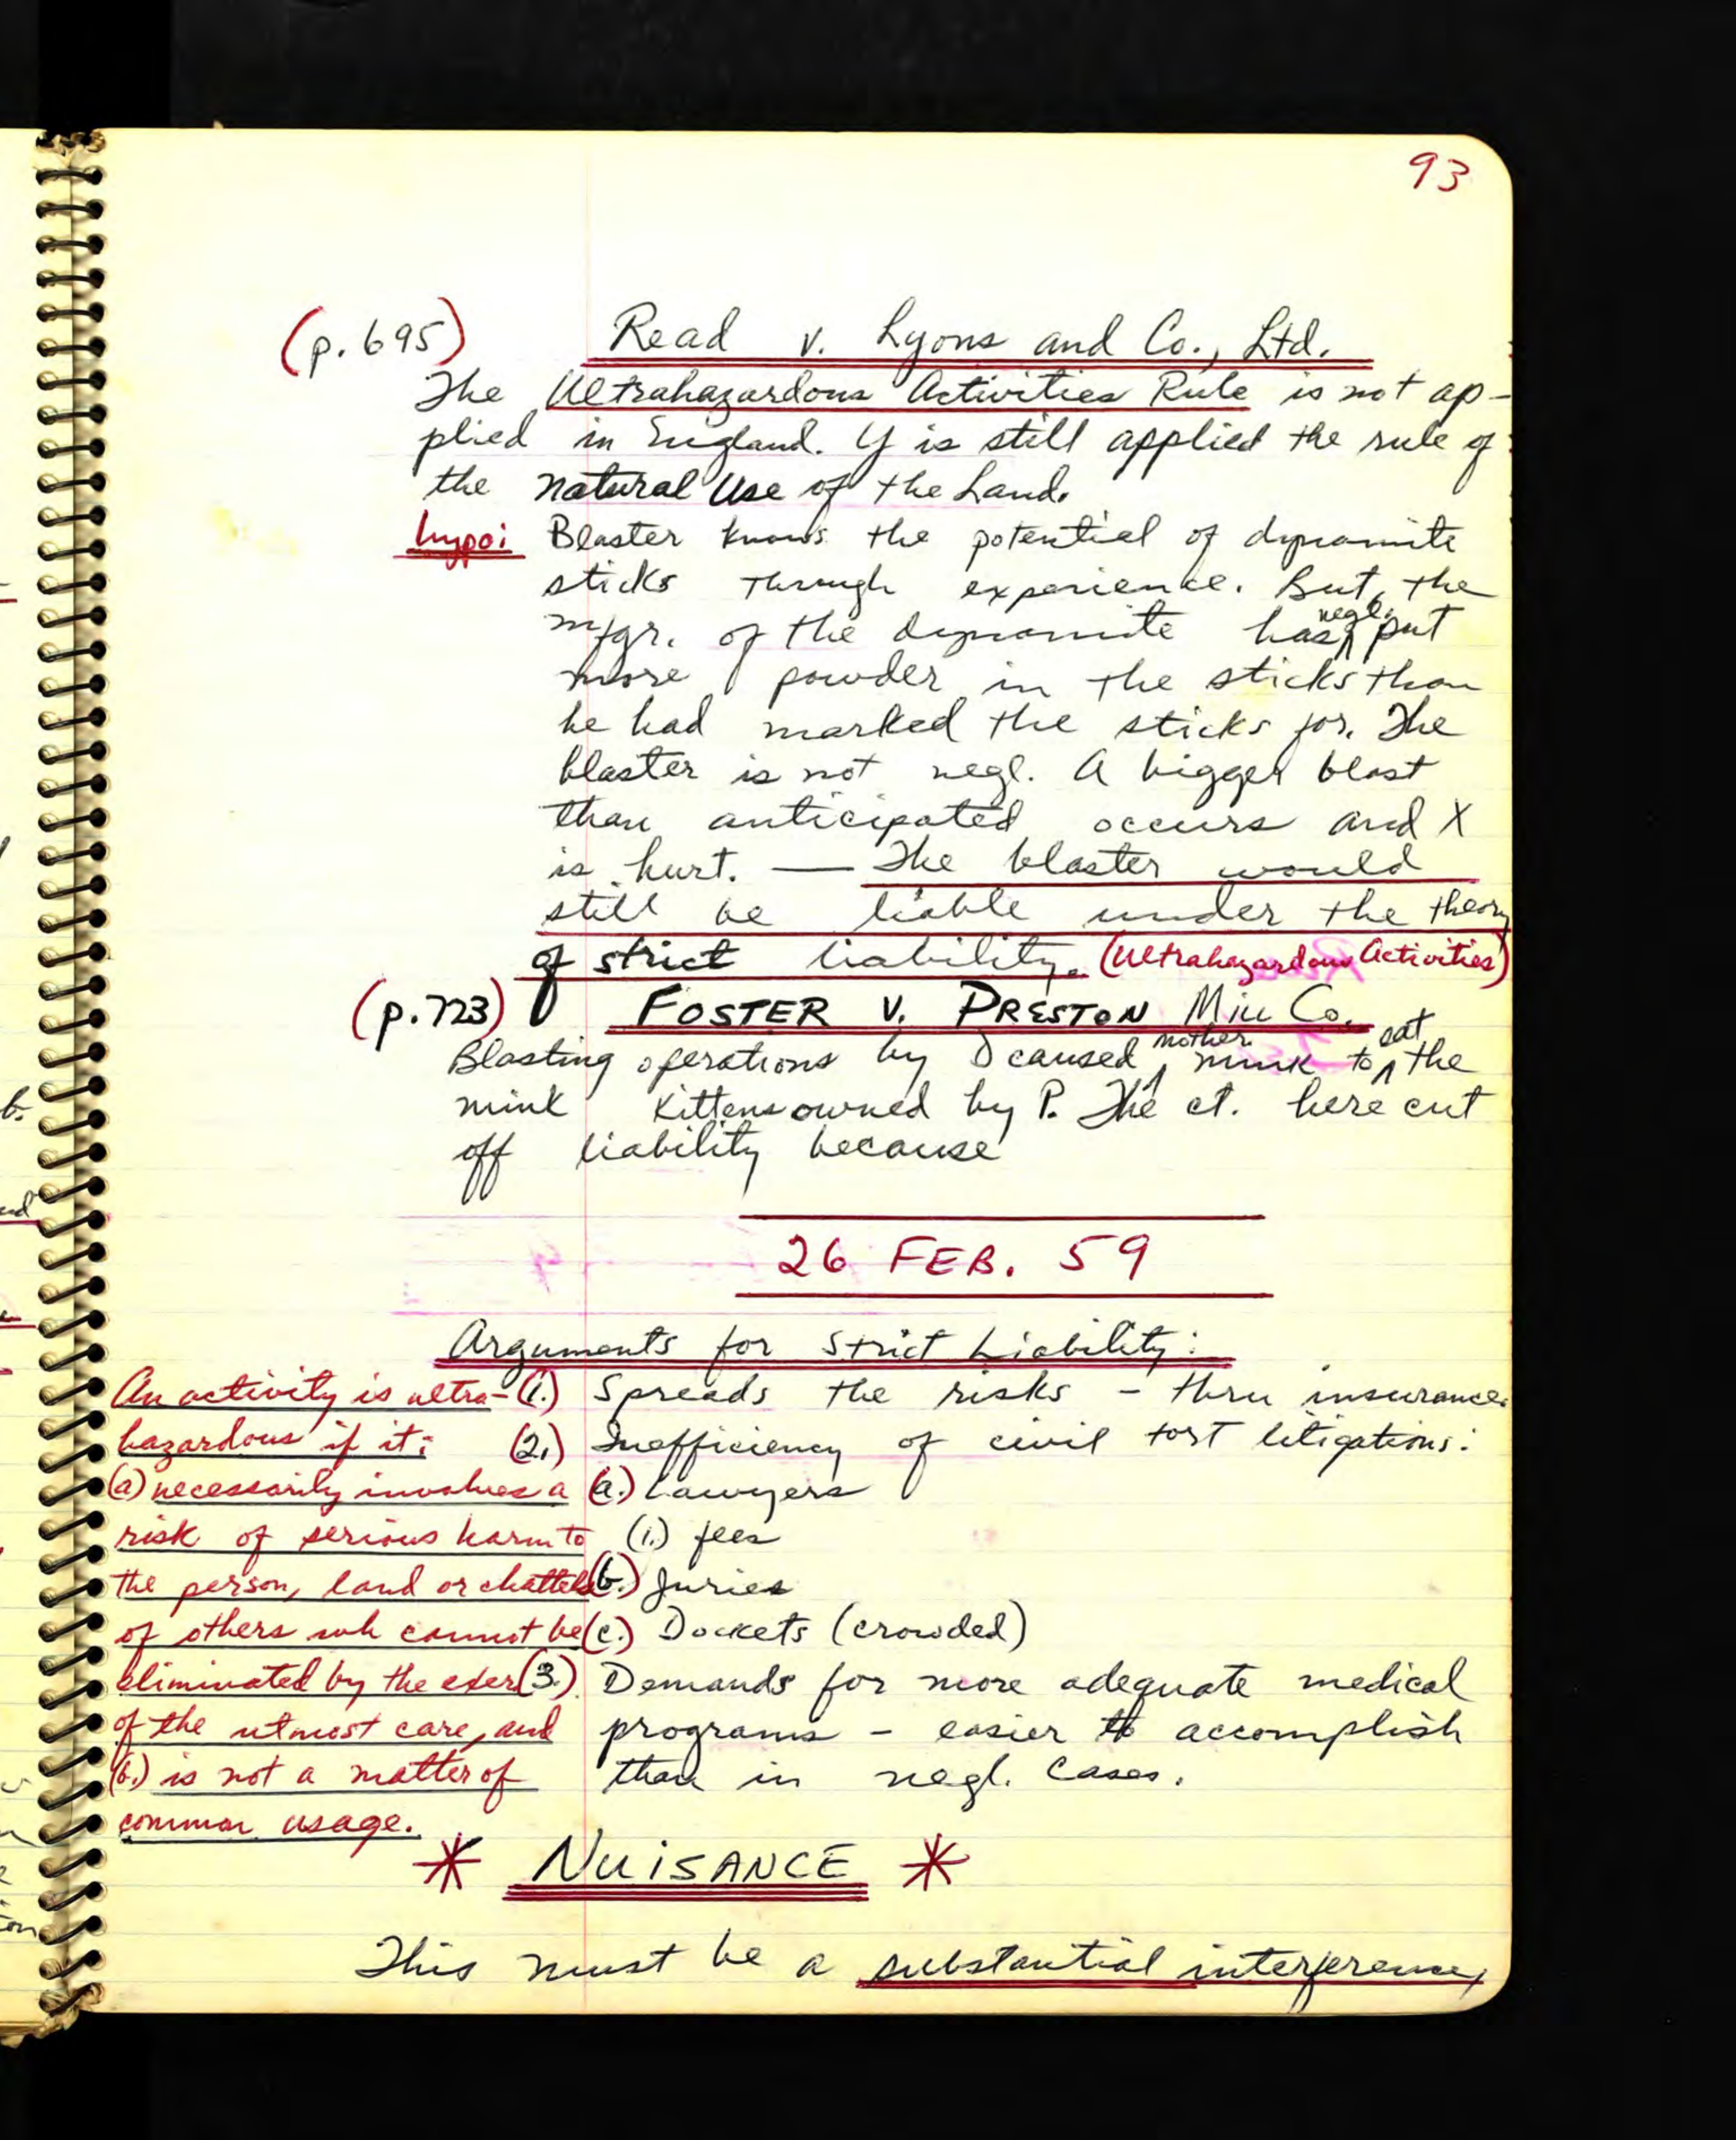 93
(p. 695) Read v. Lyons and Co., Ltd.
The Ultrahazardous Activities Rule is not ap-
plied in England. Y is still applied the rule of
the natural Use of the Land.
hypo: Blaster knows the potential of dynamite
sticks through experience. But, the
mfgr. of the dynamite has negl. put
more powder in the sticks than
he had marked the sticks for. The
blaster is not negl. A bigger blast
than anticipated occurs and X
is hurt. — The blaster would
still be liable under the theory
of strict liability. (Ultrahazardous Activities)
(p. 723) FOSTER V. PRESTON Mill Co.
Blasting operations by D caused mother mink to eat the
mink kittens owned by P. The ct. here cut
off liability because
26 FEB. 59
Arguments for Strict Liability:
(1.) Spreads the risks - thru insurance.
(2.) Inefficiency of civil tort litigations:
(a.) Lawyers
(i.) fees
(b.) Juries
(c.) Dockets (crowded)
(3.) Demands for more adequate medical
programs - easier to accomplish
than in negl. cases.
An activity is ultra-
hazardous if it:
(a) necessarily involves a
risk of serious harm to
the person, land or chattels
of others wh cannot be
eliminated by the exer
of the utmost care, and
(b.) is not a matter of
common usage.
* NUISANCE *
This must be a substantial interference,